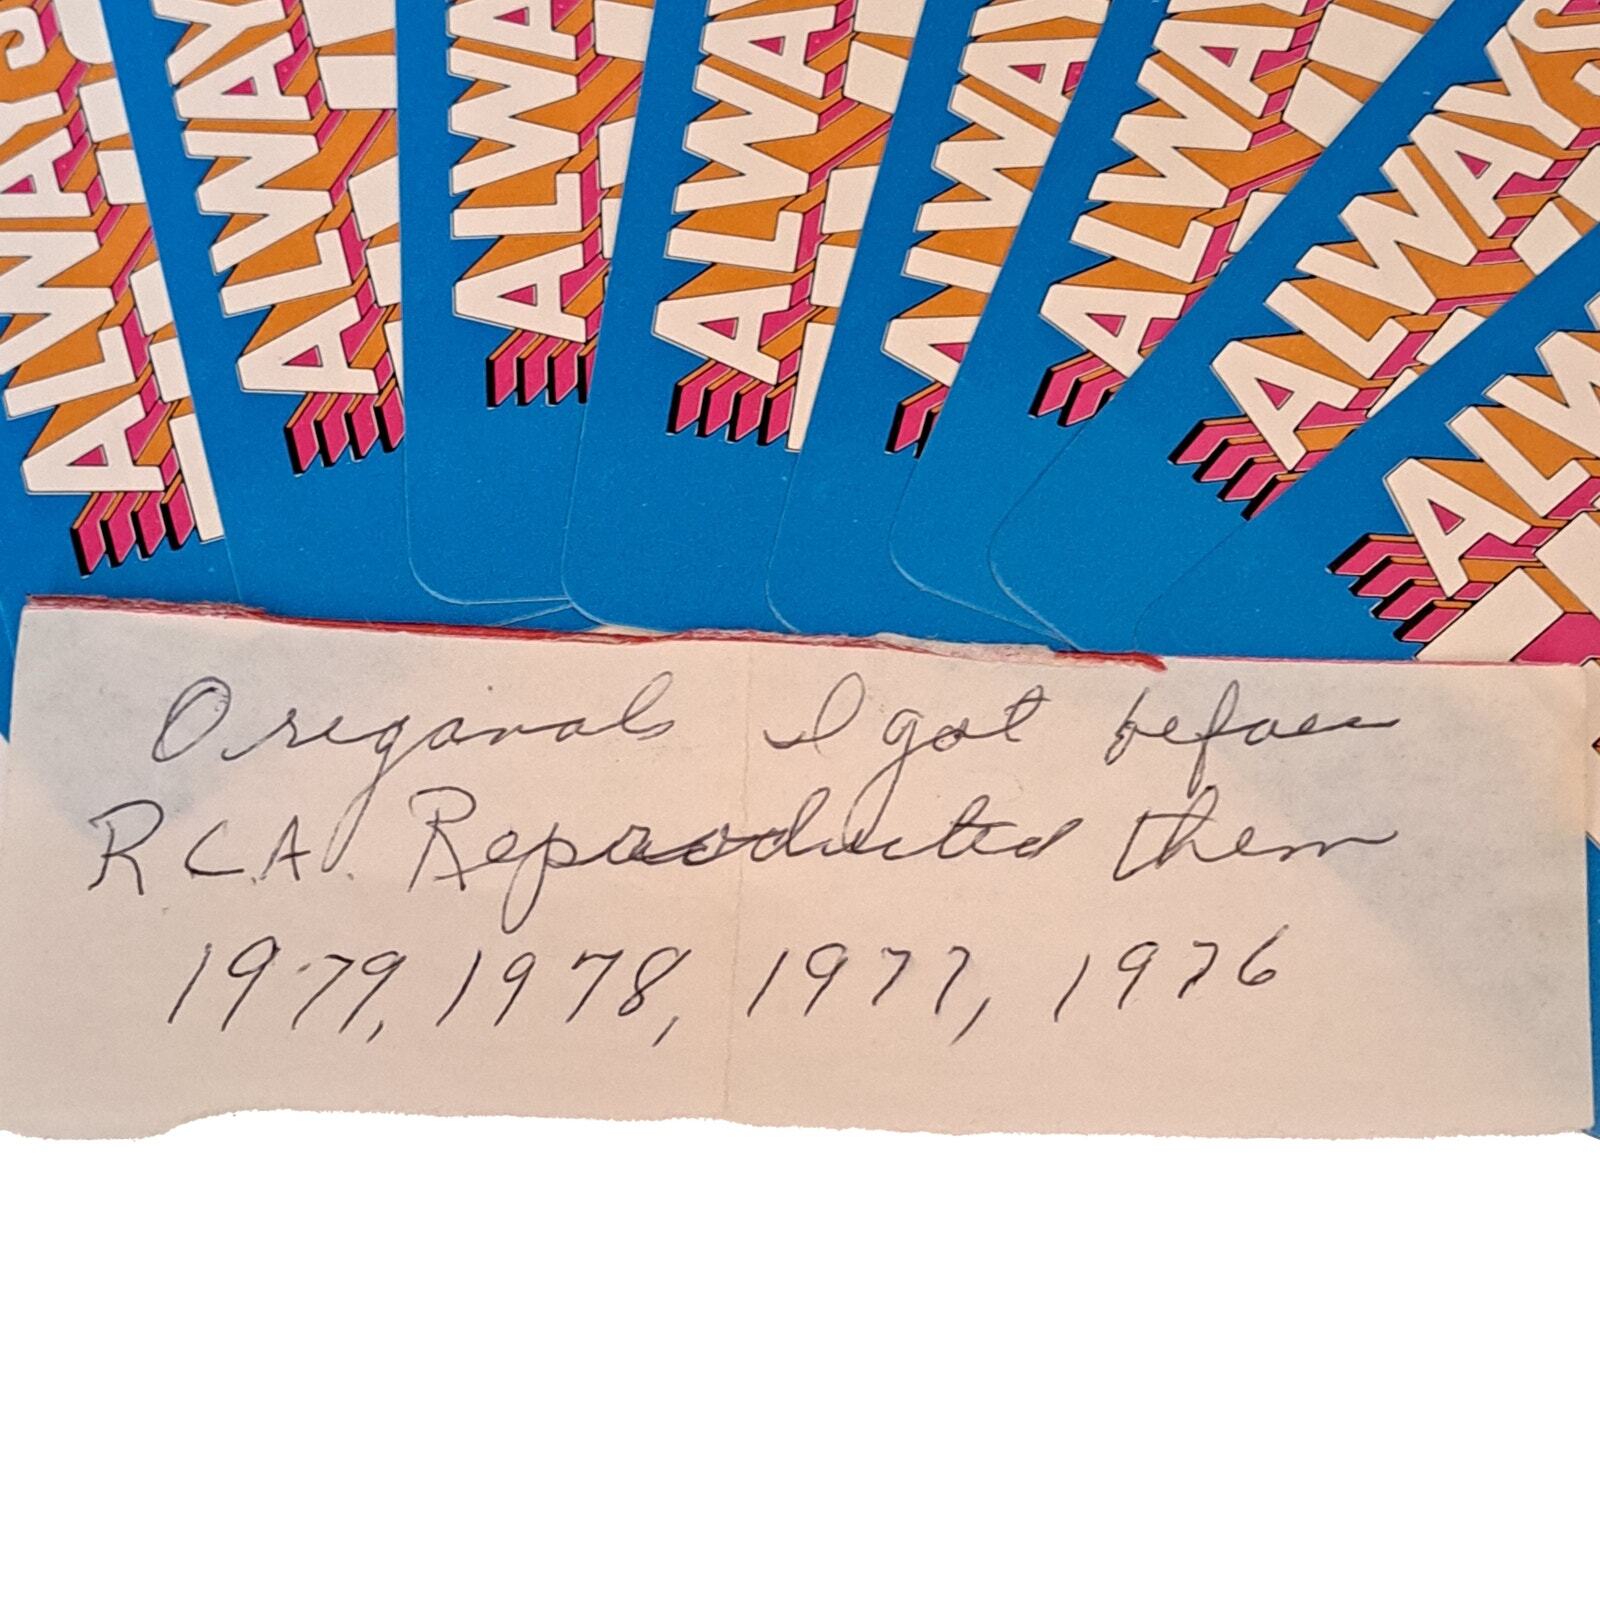 ALWAYS
ALWAY
ALWA
ALWA
ALWA
ALWA
ALWAYS
ALW
Oreganals I got before
R.C.A. Reproducted them
1979, 1978, 1977, 1976